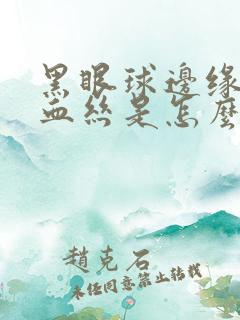 黑眼球邊緣
血絲是怎麼
趙克石
未經同意禁止轉載